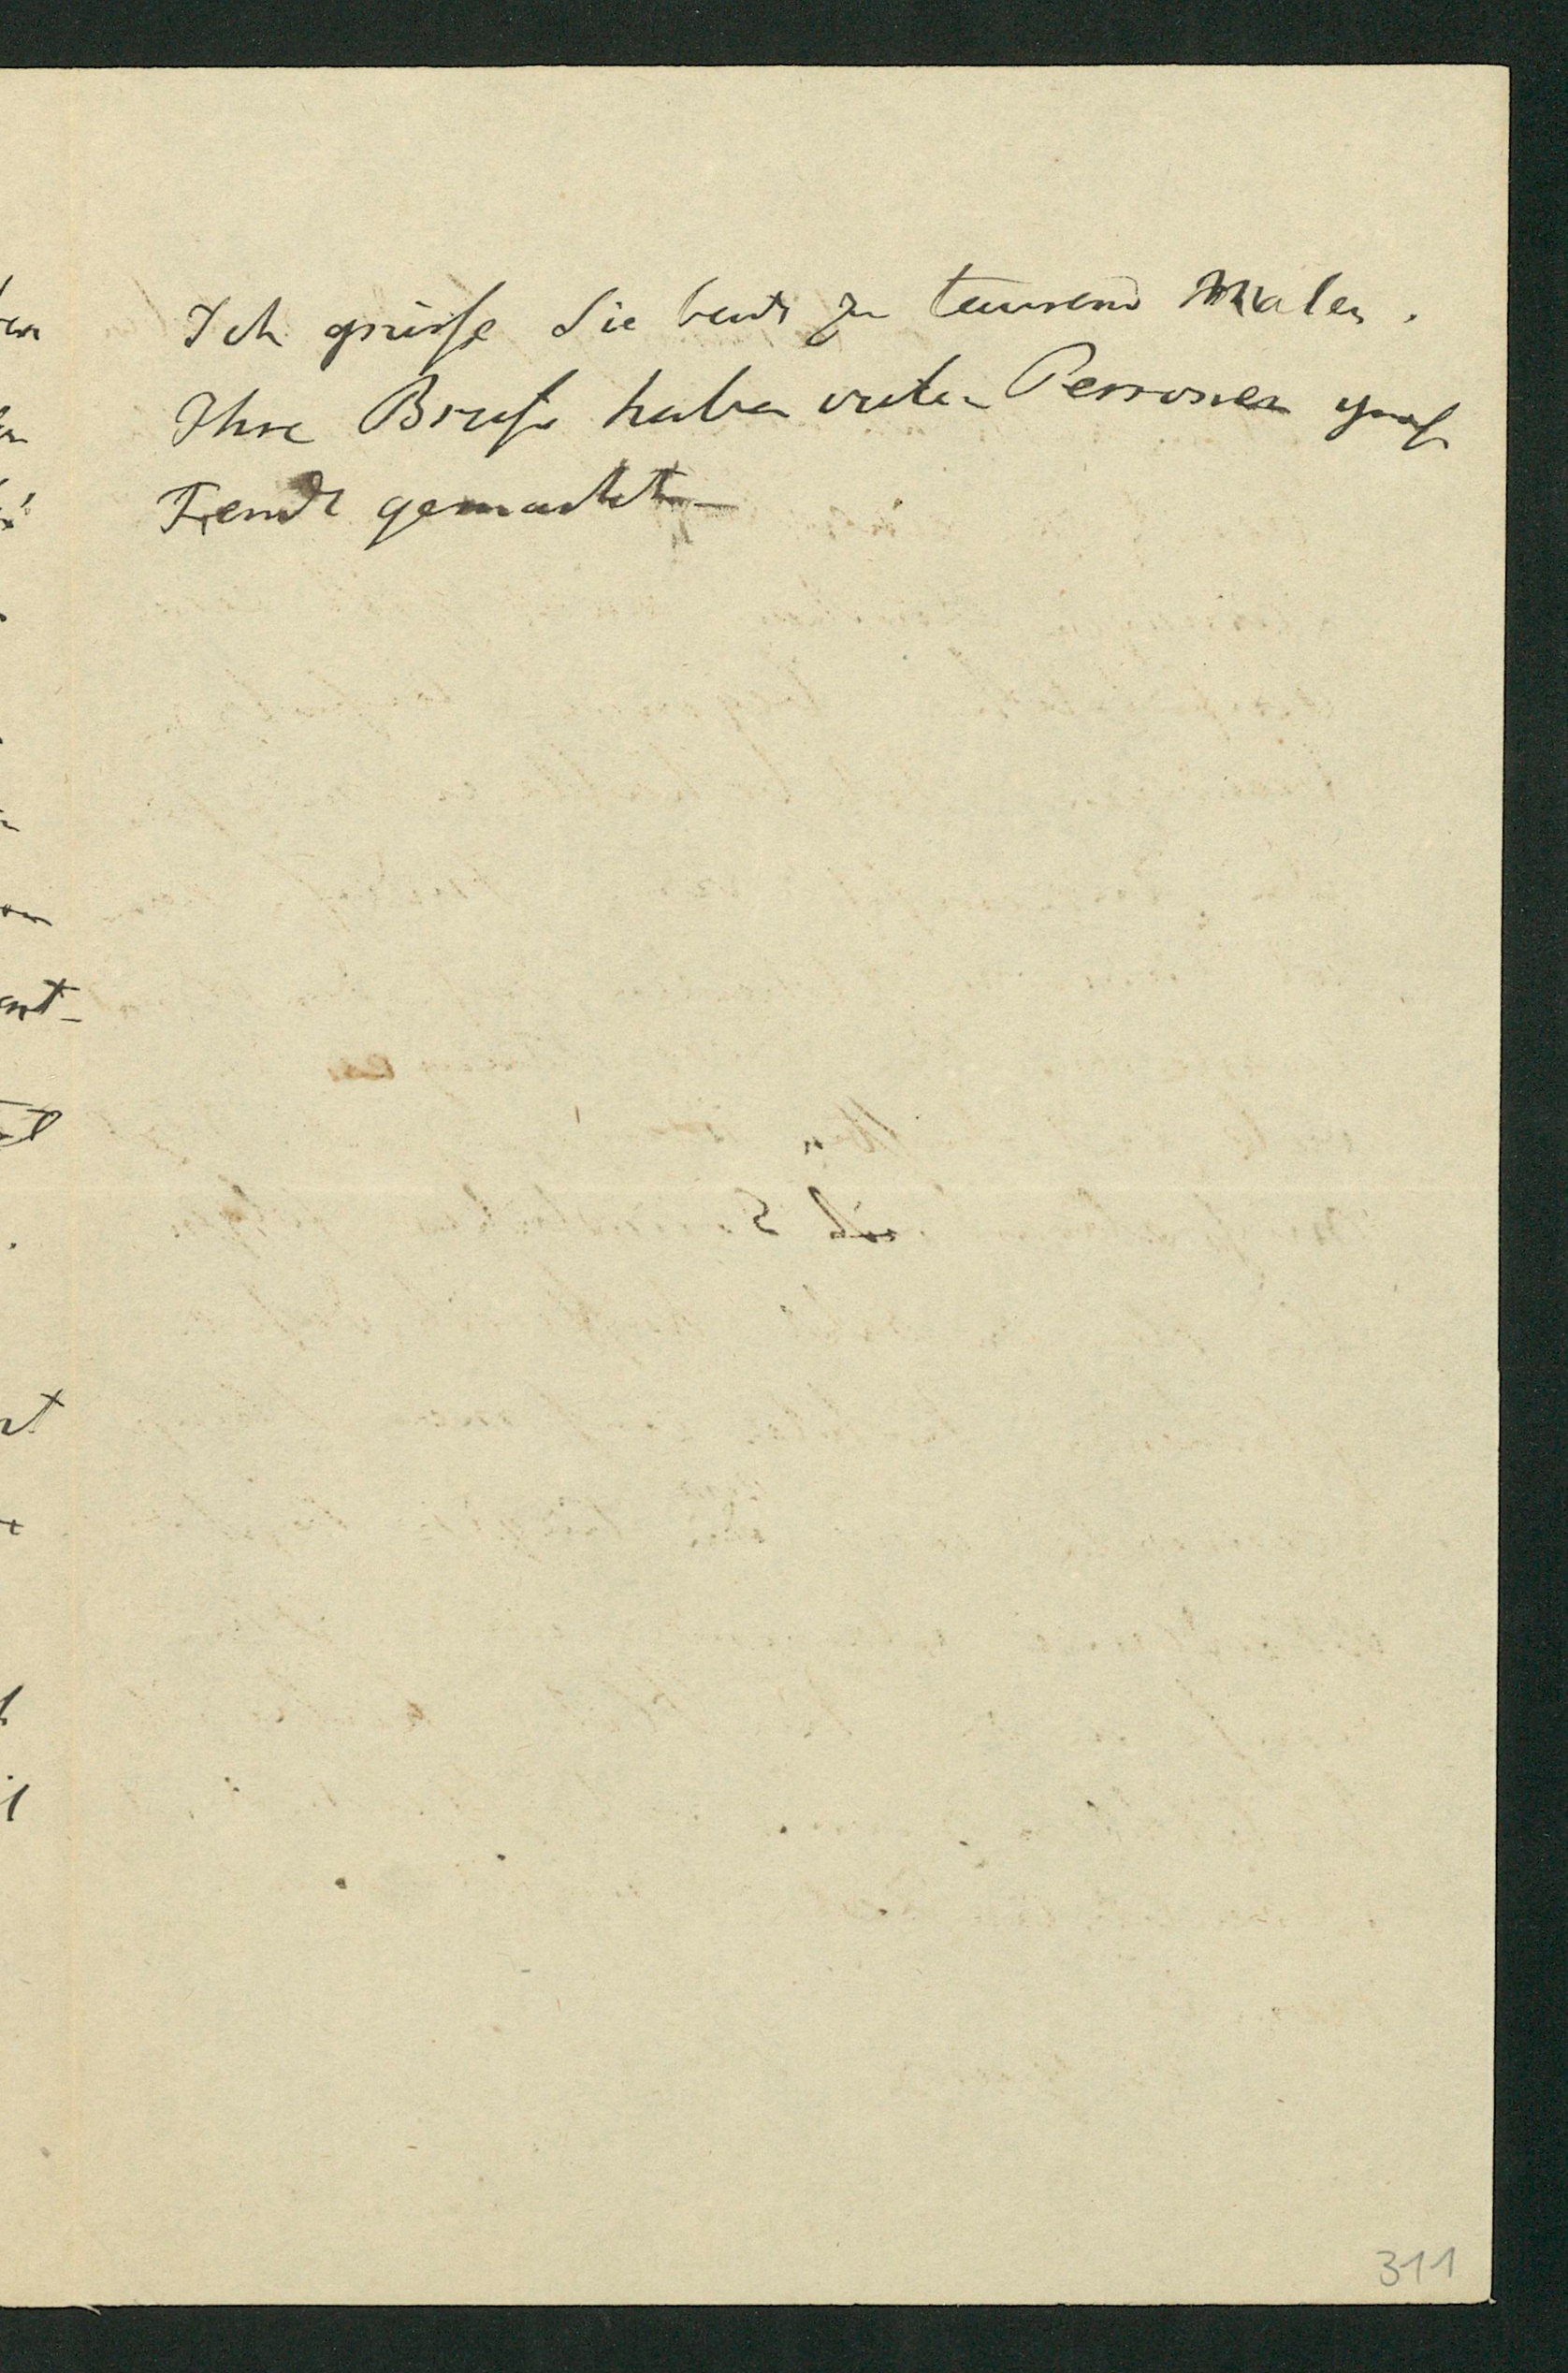 Ich grüsse Sie beide zu tausend Malen.
Ihre Briefe haben vielen Personen große
Freude gemacht
311